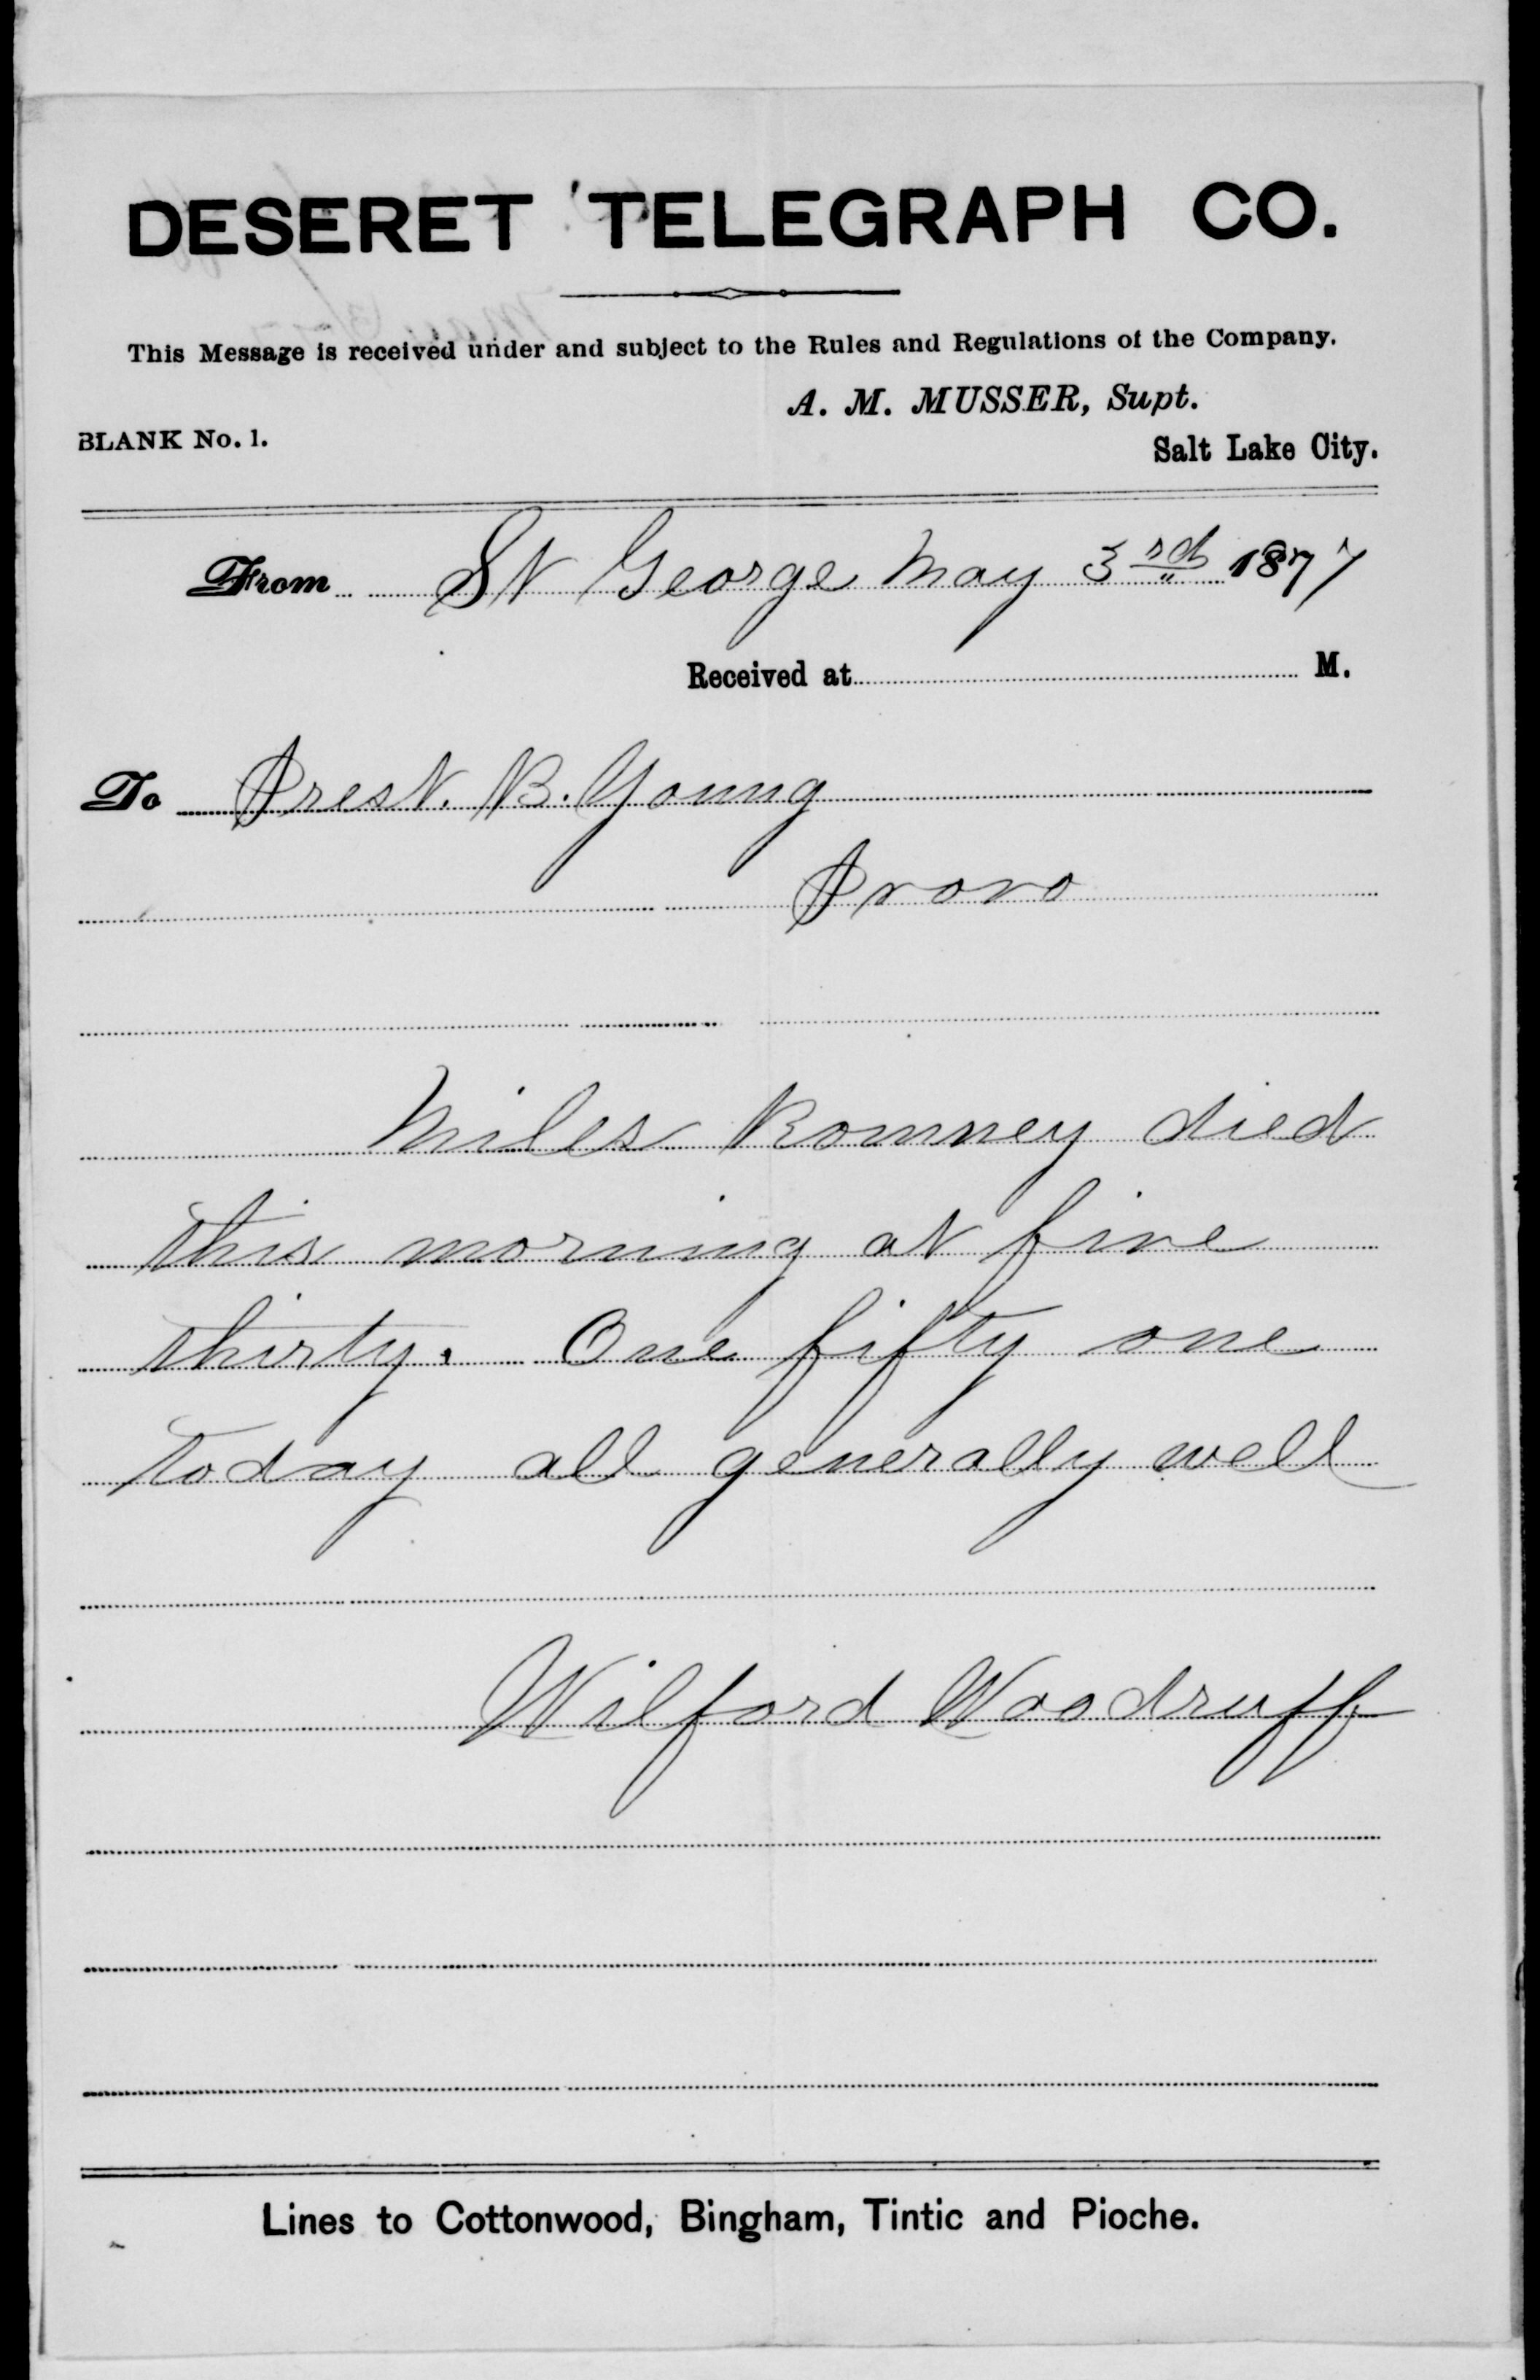 DESERET TELEGRAPH CO.
This Message is received under and subject to the Rules and Regulations of the Company.
A. M. MUSSER, Supt.
BLANK No. 1.
Salt Lake City.
From St George May 3rd 1877
Received at M.
To Prest. B. Young
Provo
Miles Romney died
this morning at five
thirty. One fifty one
today all generally well
Wilford Woodruff
Lines to Cottonwood, Bingham, Tintic and Pioche.